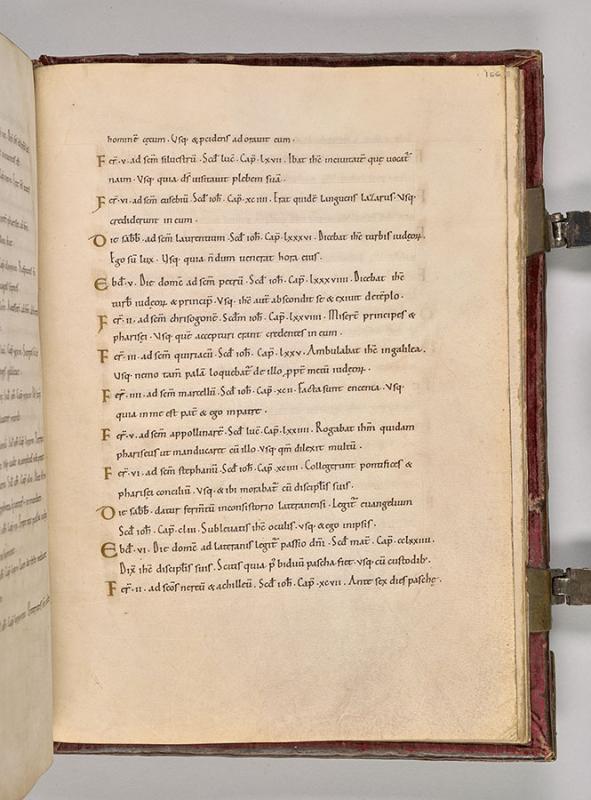 166
hominē cęcum. Usq; & p̄cidens adorauit eum.
Fer̄. v. ad sem̄ siluestrū. Sc̄d luc̄. Cap̄. lxvii. Ibat ih̄c inciuitatē quę uocat̄
naim. Usq; quia ds̄ uisitauit plebem suā.
Fer̄. vi. ad sem̄ eusebiū. Sc̄d ioh̄. Cap̄. xciiii. Erat quidē languens lazarus. Usq;
crediderunt in eum.
Die sabb̄. ad sem̄ laurentium. Sc̄d ioh̄. Cap̄. lxxxvi. Dicebat ih̄c turbis iudęoꝝ.
Ego sū lux. Usq; quia n̄dum uenerat hora eius.
Ebd̄. v. Die domc̄ ad sem̄ petrū. Sc̄d ioh̄. Cap̄. lxxxviiii. Dicebat ih̄c
turb̄ iudęoꝝ & princip̄. Usq; ih̄c aut̄ abscondit se & exiuit detēplo.
Fer̄. ii. ad sem̄ chrisogonū. Sc̄dm ioh̄. Cap̄. lxxviiii. Miserunt̄ principes &
pharisei. Usq; quē accepturi erant credentes in eum.
Fer̄. iii. ad sem̄ quiriacū. Sc̄d ioh̄. Cap̄. lxxv. Ambulabat ih̄c ingalilea.
Usq; nemo tam̄ palā loquebat̄ de illo ꝓpt̄ metū iudęoꝝ.
Fer̄. iiii. ad sem̄ marcellū. Sc̄d ioh̄. Cap̄. xcii. Facta sunt encenia. Usq;
quia in me est pat̄ & ego in patre.
Fer̄. v. ad sem̄ appollinarē. Sc̄d luc̄. Cap̄. lxxiiii. Rogabat ih̄m quidam
phariseus ut manducaret cū illo. Usq; qm̄ dilexit multū.
Fer̄. vi. ad sem̄ stephanū. Sc̄d ioh̄. Cap̄. xciiii. Collegerunt pontifices &
pharisei conciliū. Usq; & ibi morabat̄ cū discipl̄is suis.
Die sabb̄. datur fermtū inconsistorio lateranensi. Legit̄ euangelium
Sc̄d ioh̄. Cap̄. cliii. Subleuatis ih̄c oculis. Usq; & ego inipsis.
Ebd̄. vi. Die domc̄ ad lateranis legit̄ passio dn̄i. Sc̄d mat̄. Cap̄. cclxxiiii.
Dix̄ ih̄c discipl̄is suis. Scitis quia p̄ biduū pascha fiet. usq; cū custodib;.
Fer̄. ii. ad sc̄os nereū & achilleū. Sc̄d ioh̄. Cap̄. xcvii. Ante sex dies paschę.